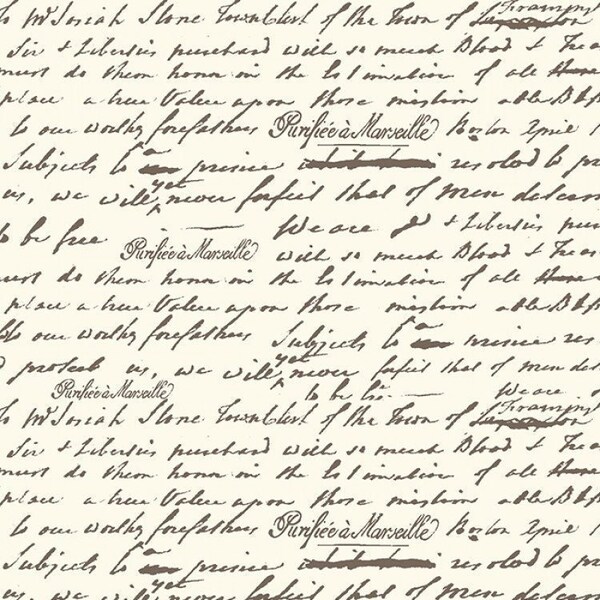 Framingh
To Mr Josiah Stone Town Clerk of the Town of
Sir & Liberties purchasd with so much Blood & Trea
must do them honor in the Estimation of all these
place a true Value upon those inestim able Bles
to our worthy forefathers Purifiée à Marseille Boston April 1
Subjects to a prince resolvd to pr
us, we will yet never forfeit that of men determ
We are & Liberties pur
to be free Purifiée à Marseille with so much Blood & Trea
must do them honor in the Estimation of all these
place a true Value upon those inestim able Bles
to our worthy forefathers Subjects to a prince res
d protect us, we will yet never forfeit that of men det
Purifiée à Marseille to be We are
Framingh
To Mr Josiah Stone Town Clerk of the Town of
Sir & Liberties purchasd with so much Blood & Trea
must do them honor in the Estimation of all these
place a true Value upon those inestim able Bles
to our worthy forefathers Purifiée à Marseille Boston April 1
Subjects to a prince resolvd to pr
us, we will yet never forfeit that of men determ